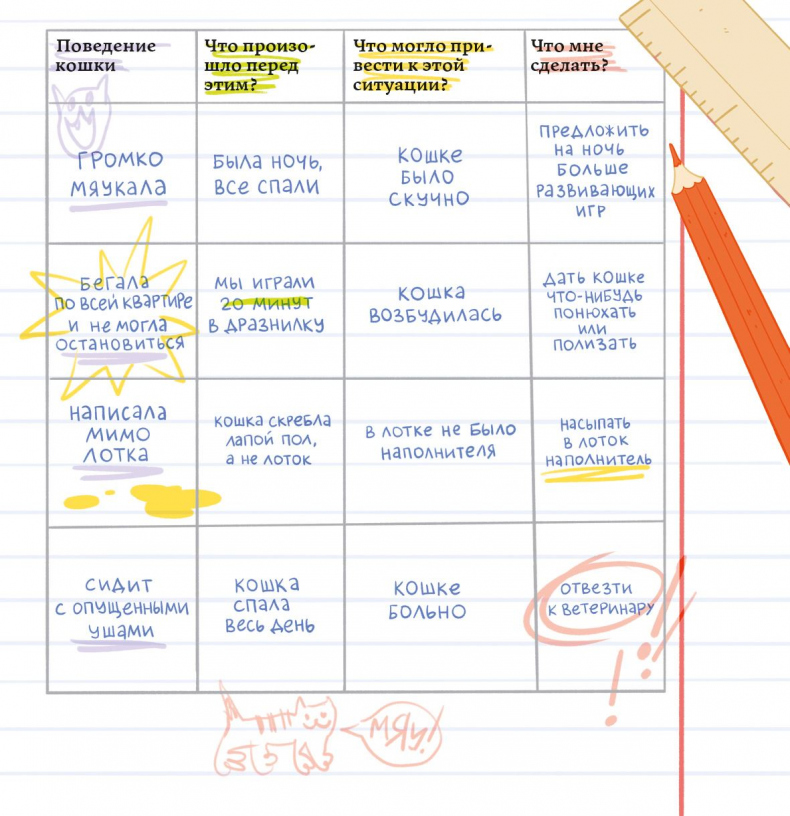 Поведение
кошки
Что произо-
шло перед
этим?
Что могло при-
вести к этой
ситуации?
Что мне
сделать?
ГРОМКО
МЯУКАЛА
БЫЛА НОЧЬ,
ВСЕ СПАЛИ
КОШКЕ
БЫЛО
СКУЧНО
ПРЕДЛОЖИТЬ
НА НОЧЬ
БОЛЬШЕ
РАЗВИВАЮЩИХ
ИГР
БЕГАЛА
ПО ВСЕЙ КВАРТИРЕ
И НЕ МОГЛА
ОСТАНОВИТЬСЯ
МЫ ИГРАЛИ
20 МИНУТ
В ДРАЗНИЛКУ
КОШКА
ВОЗБУДИЛАСЬ
ДАТЬ КОШКЕ
ЧТО-НИБУДЬ
ПОНЮХАТЬ
ИЛИ
ПОЛИЗАТЬ
НАПИСАЛА
МИМО
ЛОТКА
КОШКА СКРЕБЛА
ЛАПОЙ ПОЛ,
А НЕ ЛОТОК
В ЛОТКЕ НЕ БЫЛО
НАПОЛНИТЕЛЯ
НАСЫПАТЬ
В ЛОТОК
НАПОЛНИТЕЛЬ
СИДИТ
С ОПУЩЕННЫМИ
УШАМИ
КОШКА
СПАЛА
ВЕСЬ ДЕНЬ
КОШКЕ
БОЛЬНО
ОТВЕЗТИ
К ВЕТЕРИНАРУ
!!
!
МЯУ!